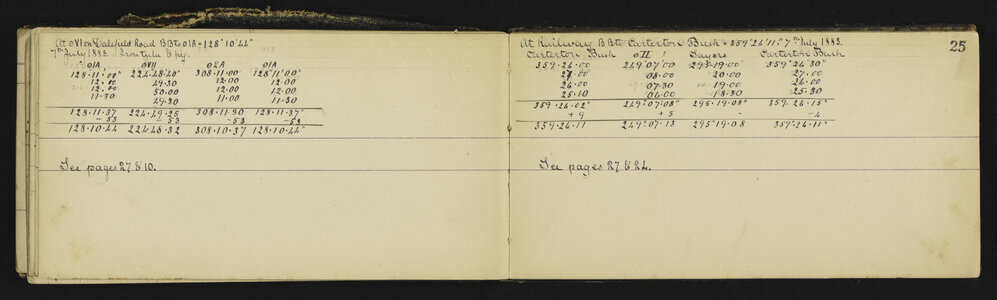 At OVI on Dalefield Road BB to OIA = 128°10'44"
7th July 1883. Iron tube & peg.
OIA OVII O2A OIA
128·11·00" 224·48·40" 308·11·00 128°11'00"
12·00 49·30 12·00 12·00
12·00 50·00 12·00 12·00
11·30 49·30 11·00 11·30
128·11·37 224·49·25 308·11·30 128·11·37"
-53 -53 -53 -53
128·10·44 224·48·32 308·10·37 128·10·44"
See pages 27 & 10.
25
At Railway BB to Carterton Bush = 359°26'11" 7th July 1883.
Carterton Bush OII Sayers Carterton Bush
359·26·00 249°07'00 295·19·00" 359°26'30"
27·00 08·00 20·00 27·00
26·00 07·30 19·00 26·00
25·10 06·00 18·30 25·30
359·26·02" 249°07'08" 295·19·08" 359·26·15"
+9 +5 - -4
359·26·11 249°07·13 295°19·08 359°26·11"
See pages 27 & 24.